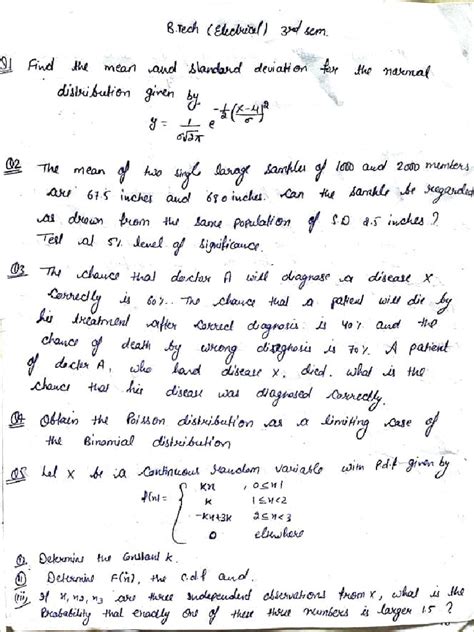 B.Tech (Electrical) 3rd sem.
Q1 Find the mean and standard deviation for the normal
distribution given by
y = 1/(σ√2π) e^{-1/2((x-μ)/σ)^2}
Q2 The mean of two singl large samples of 1000 and 2000 members
are 67.5 inches and 68.0 inches. Can the sample be regarded
as drown from the same population of S.D 2.5 inches?
Test at 5% level of significance.
Q3 The chance that docter A will diagnose a disease X
correctly is 60%. The chance that a patient will die by
his treatment after correct diagnosis is 40% and the
chance of death by wrong diagnosis is 70%. A patient
of docter A, who had disease X, died. what is the
chance that his disease was diagnosed correctly.
Q4 Obtain the Poisson distribution as a limiting case of
the Binomial distribution
Q5 Let X be a continuous random variable with p.d.f given by
f(x) = { kx , 0≤x<1
k 1≤x<2
-kx+3k 2≤x<3
0 elsewhere
(i) Determine the Constant k.
(ii) Determine F(x), the c.d.f and.
(iii) If x1, x2, x3 are three independent observations from X, what is the
Probability that exactly one of these three numbers is larger 1.5 ?